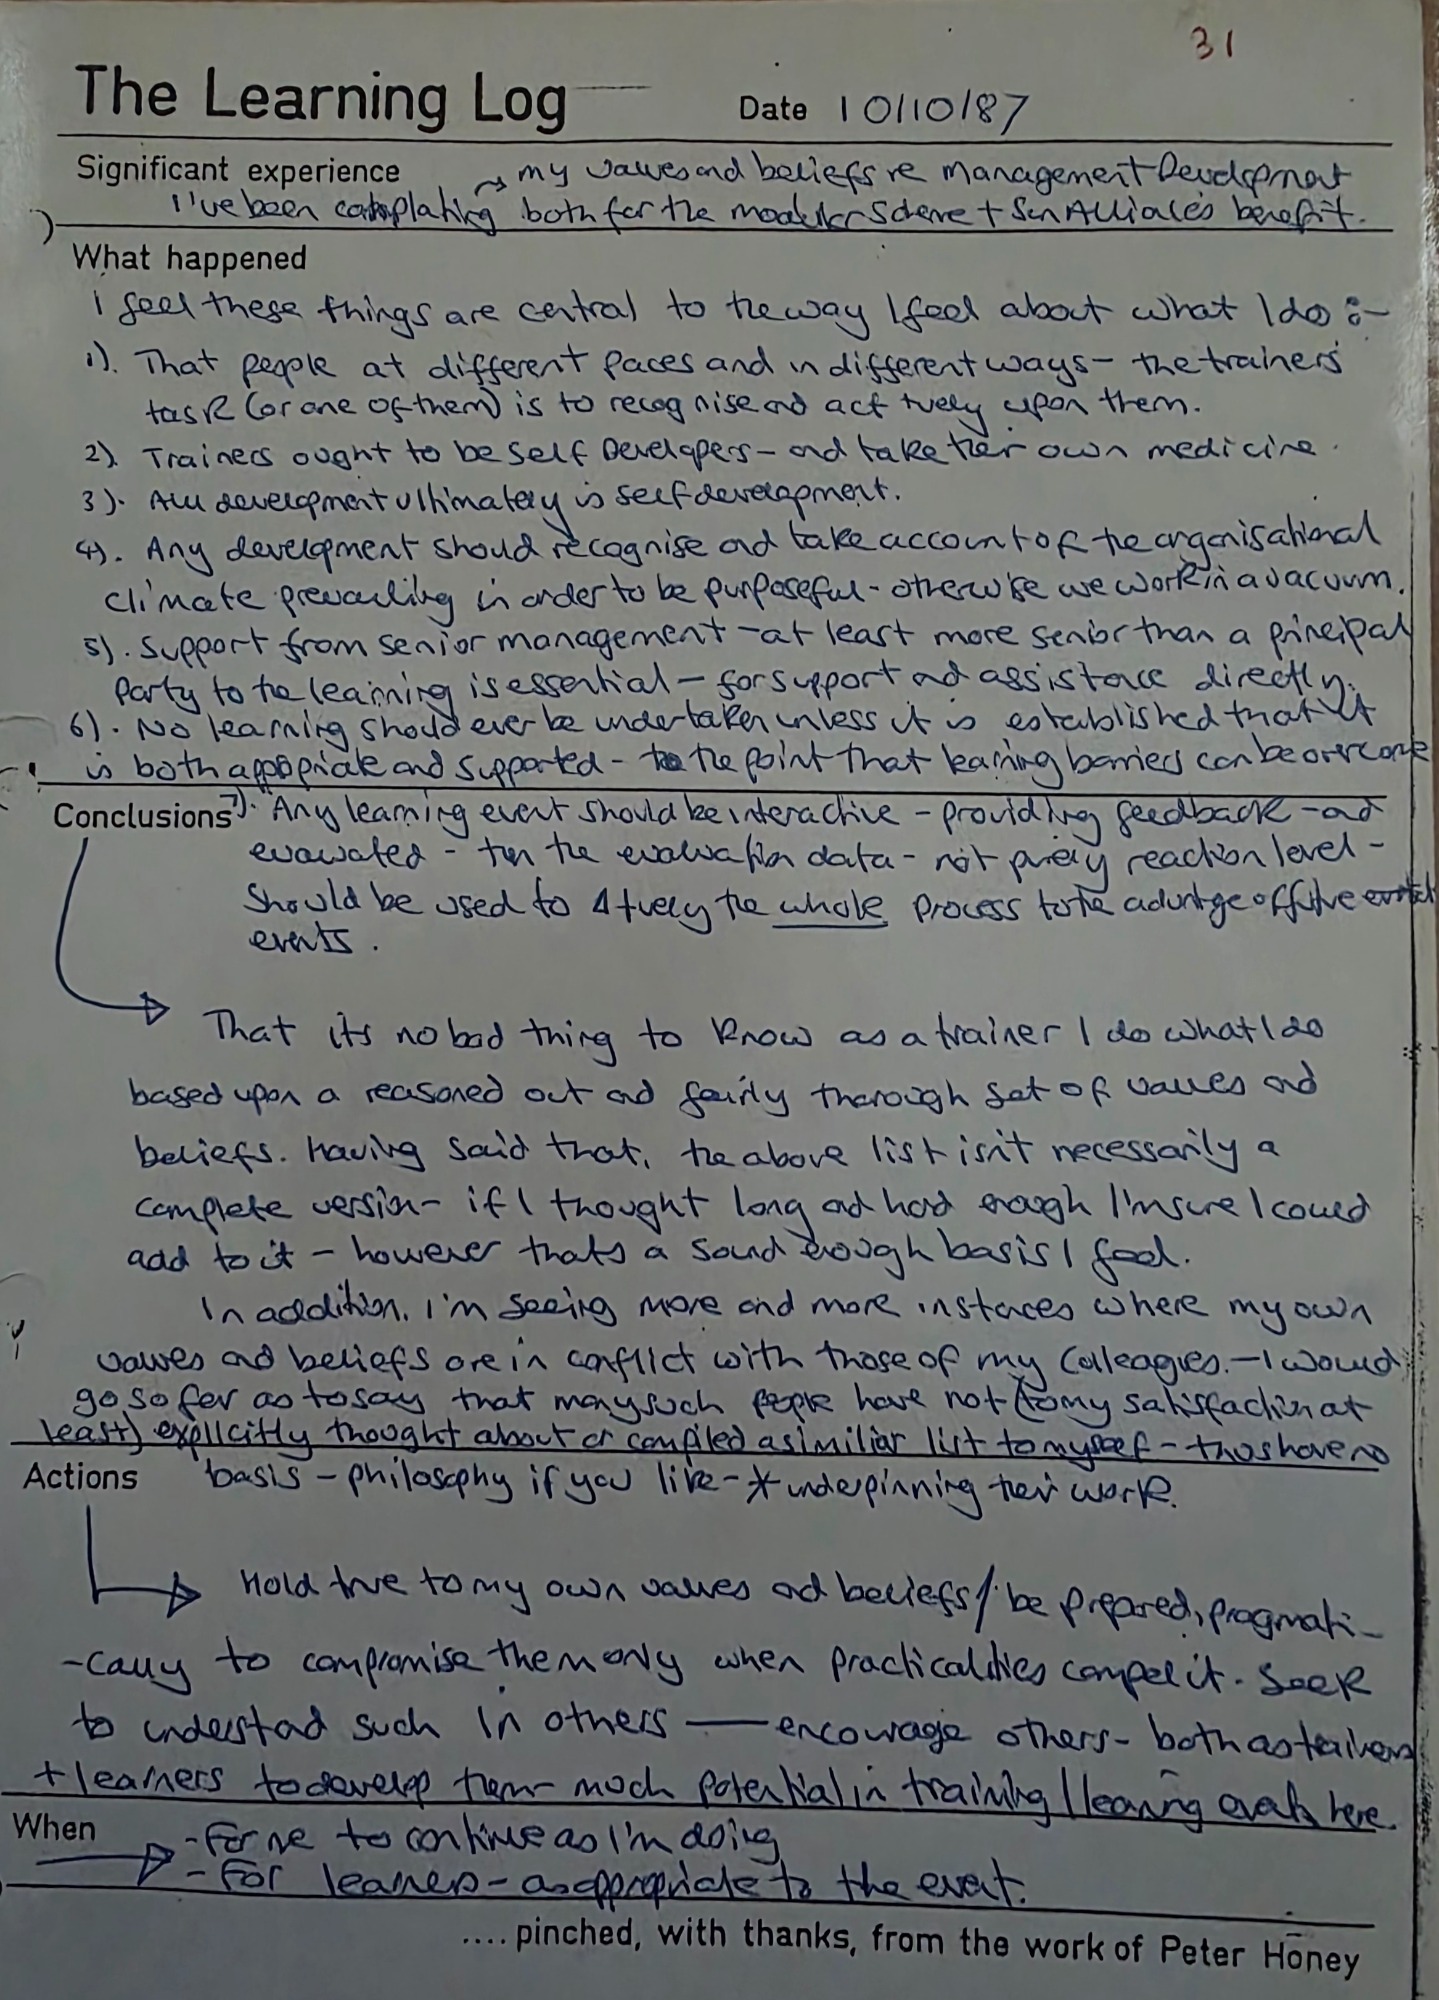 31
The Learning Log
Date 10/10/87
Significant experience → my values and beliefs re Management Development
I've been contemplating both for the modular Scheme + Sun Alliance's benefit.
What happened
I feel these things are central to the way I feel about what I do :-
1). That people at different paces and in different ways - the trainers'
task (or one of them) is to recognise and act +vely upon them.
2). Trainers ought to be Self Developers - and take their own medicine.
3). All development ultimately is self development.
4). Any development should recognise and take account of the organisational
climate prevailing in order to be purposeful - otherwise we work in a vacuum.
5). Support from senior management - at least more senior than a principal
party to the learning is essential - for support and assistance directly.
6). No learning should ever be undertaken unless it is established that it
is both appropriate and supported - to the point that learning barriers can be overcome
Conclusions 7). Any learning event should be interactive - providing feedback - and
evaluated - then the evaluation data - not purely reaction level -
should be used to Δ +vely the whole process to the advantage of future
events.
That its no bad thing to know as a trainer I do what I do
based upon a reasoned out and fairly thorough set of values and
beliefs. Having said that, the above list isn't necessarily a
complete version - if I thought long and hard enough I'm sure I could
add to it - however thats a sound enough basis I feel.
In addition, I'm seeing more and more instances where my own
values and beliefs are in conflict with those of my colleagues. - I would
go so far as to say that many such people have not (to my satisfaction at
least) explicitly thought about or compiled a similiar list to myself - thus have no
Actions basis - philosophy if you like - * underpinning their work.
Hold true to my own values and beliefs / be prepared, pragmati-
-cally to compromise them only when practicalities compel it. Seek
to understand such in others — encourage others - both as trainers
+ learners to develop them - much potential in training / learning events here.
When
- For me to continue as I'm doing
- For learners - as appropriate to the event.
.... pinched, with thanks, from the work of Peter Honey